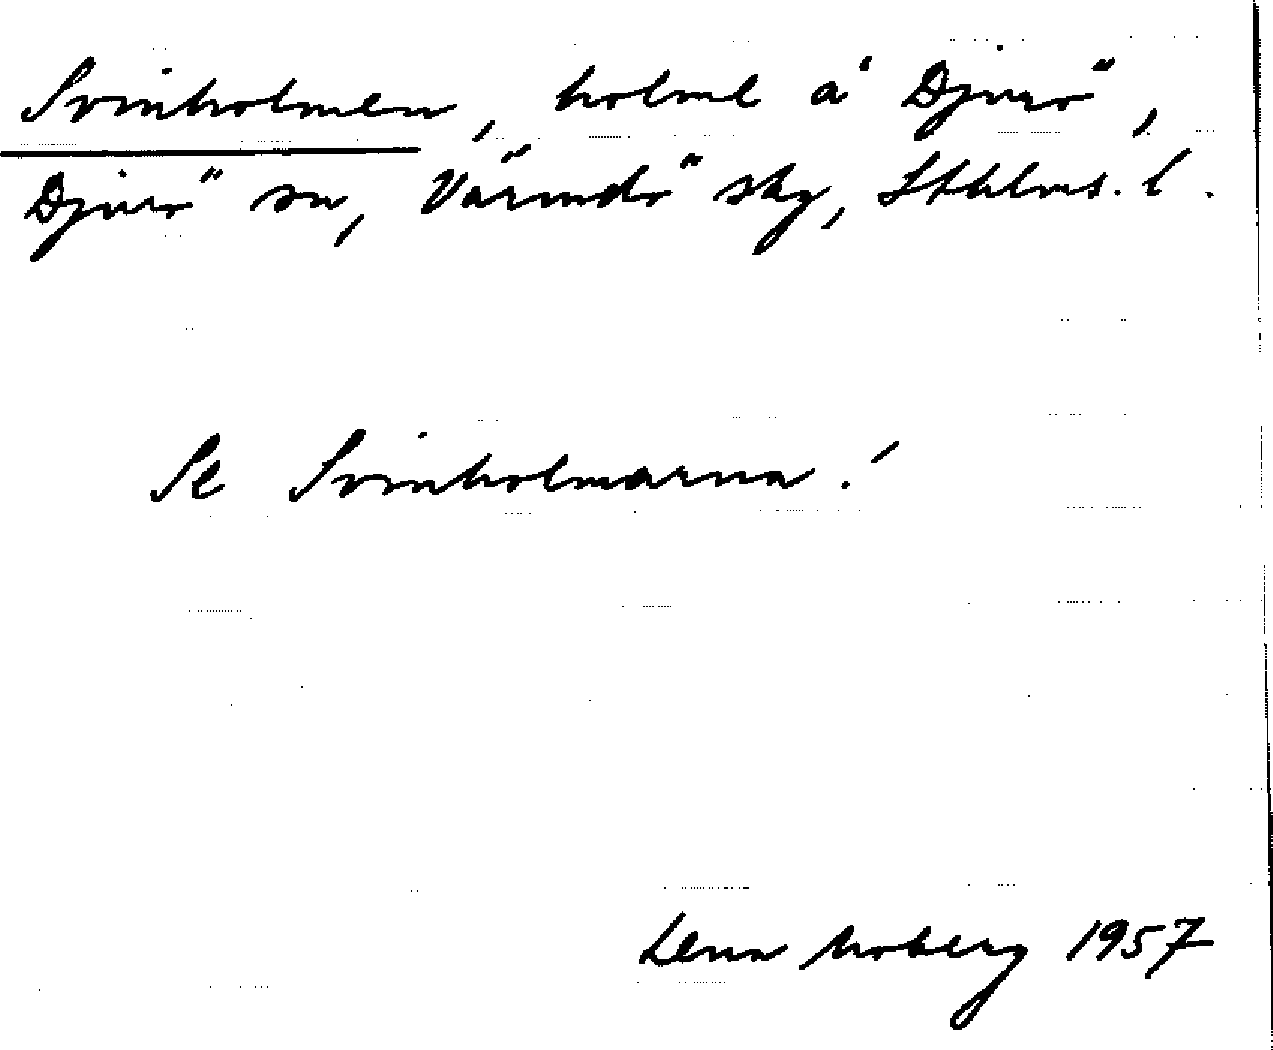 Svinholmen, holme å Djurö,
Djurö sn, Värmdö skg, Sthlms. l.
Se Svinholmarna!
Lena Moberg 1957